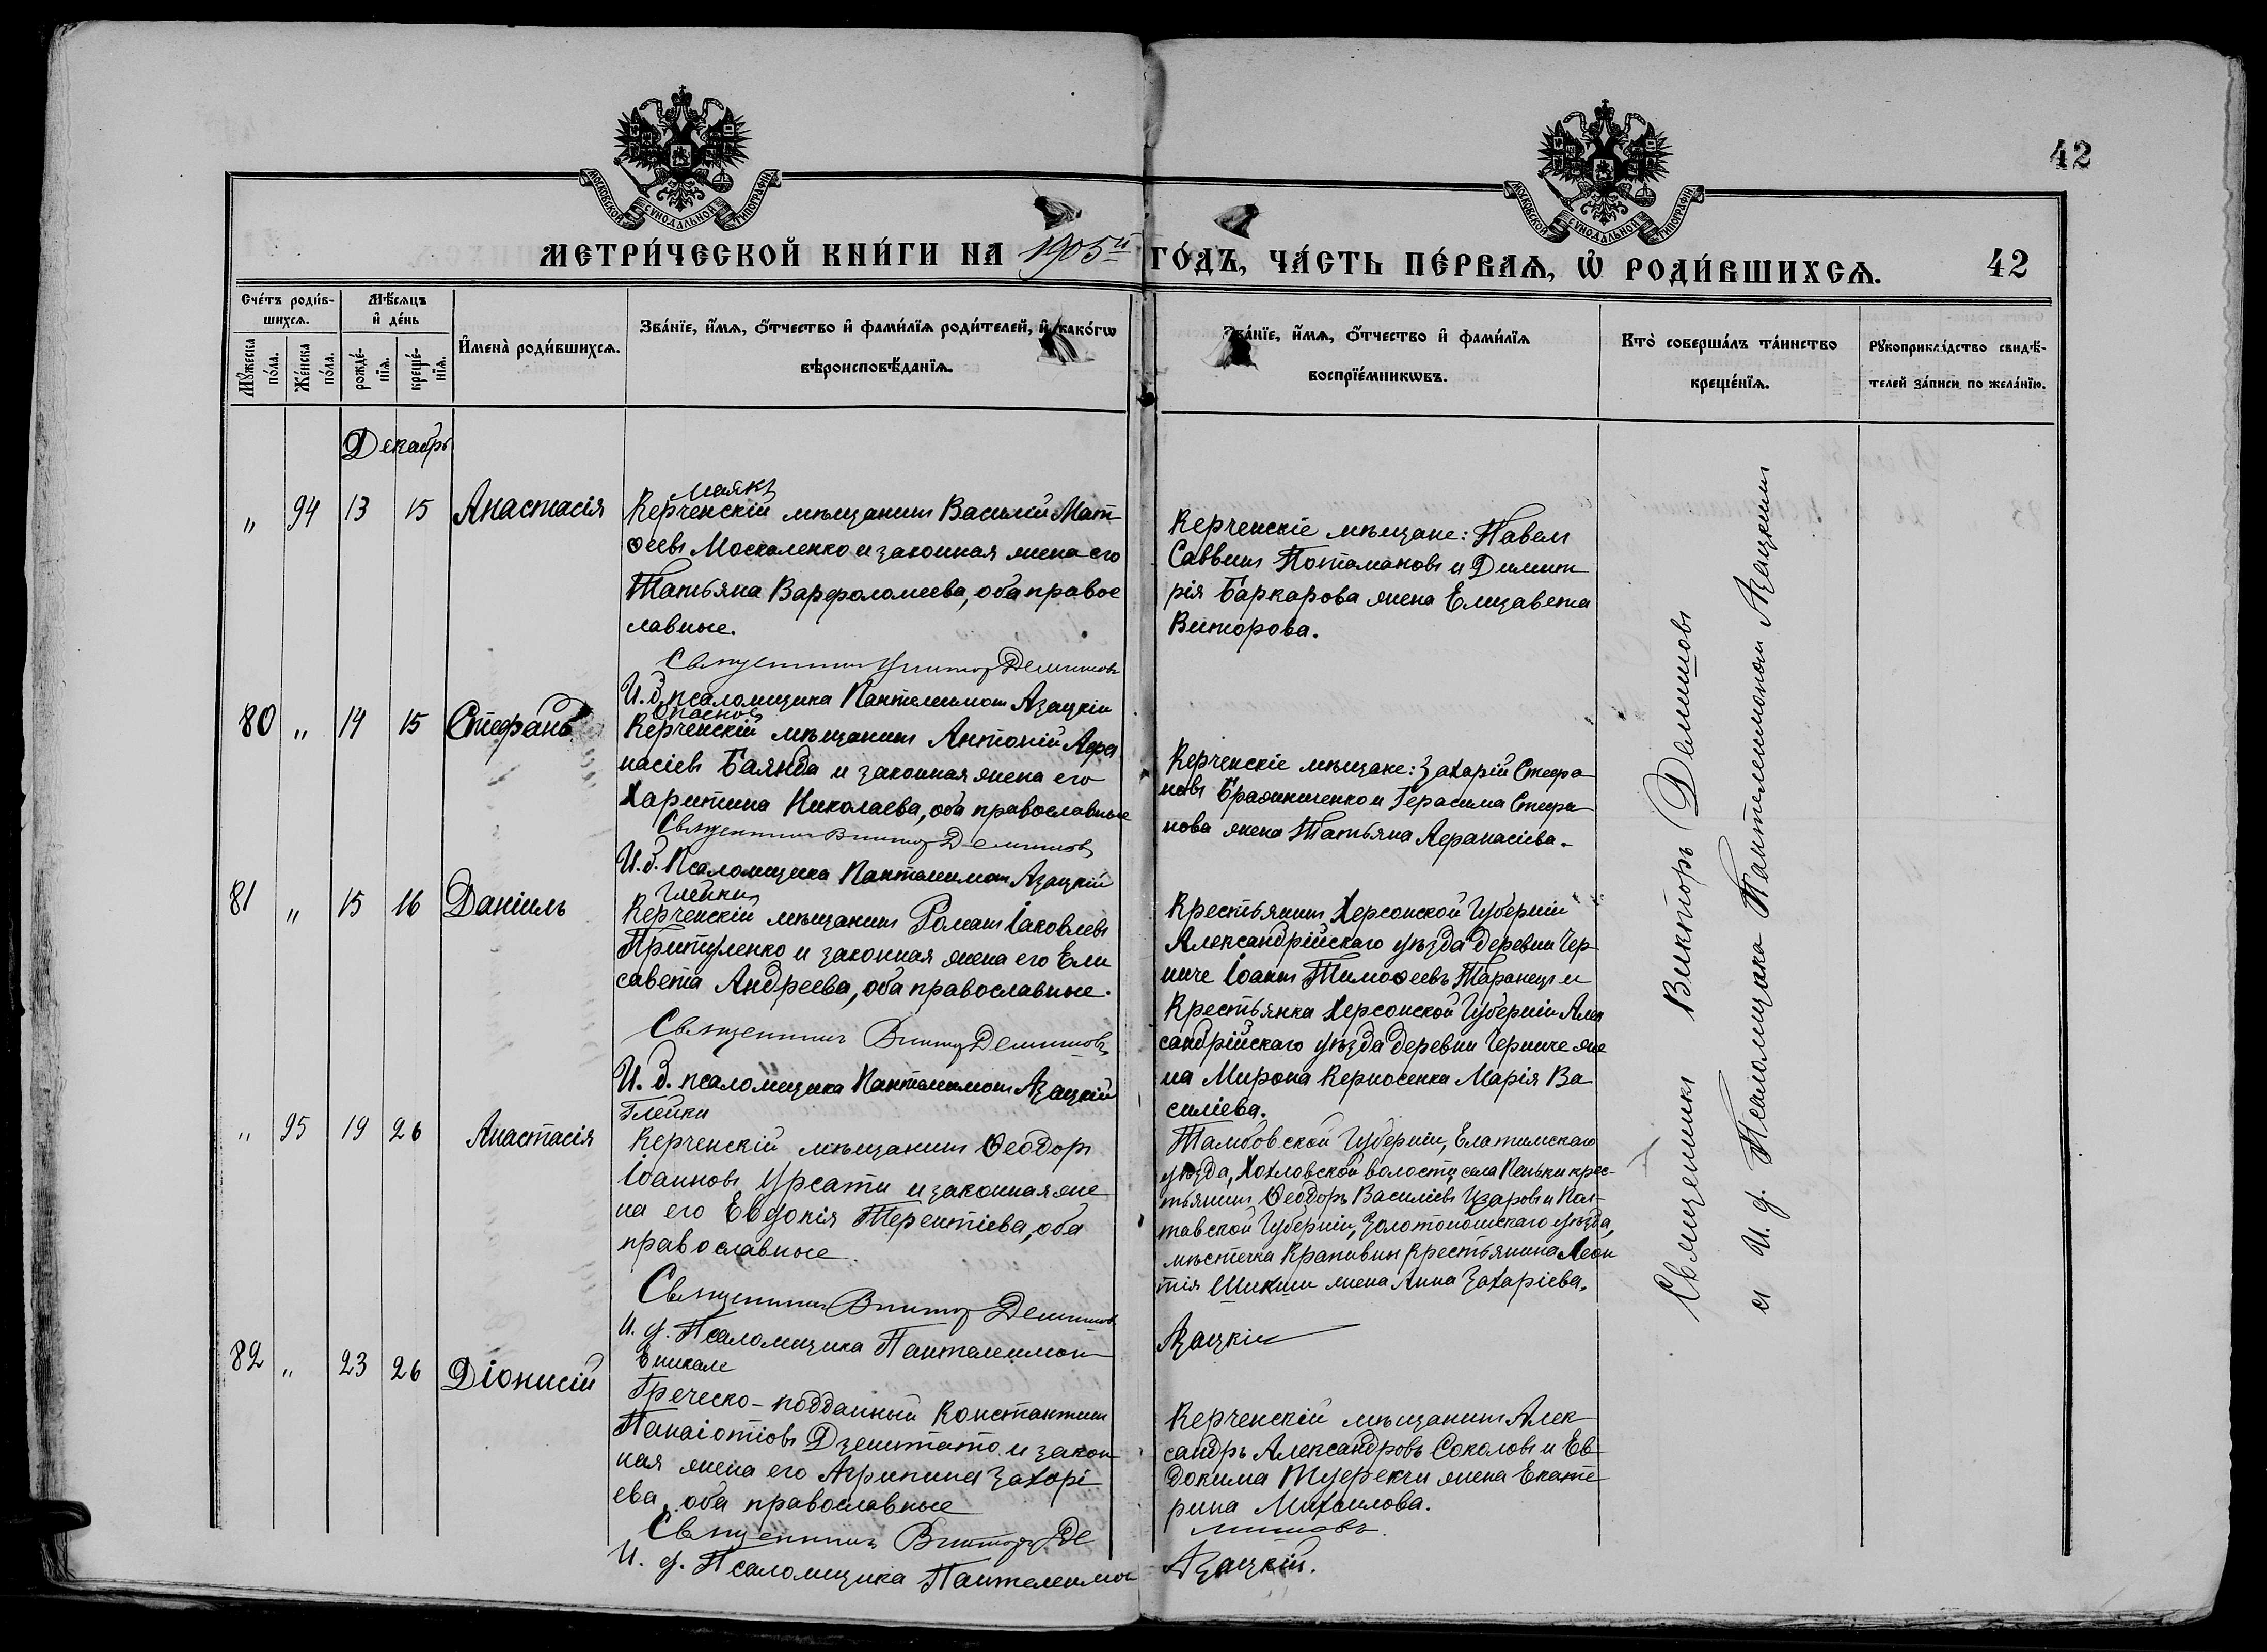 42
МОСКОВСКОЙ СУНОДАЛЬНОЙ ТИПОГРАФІИ
МОСКОВСКОЙ СУНОДАЛЬНОЙ ТИПОГРАФІИ
МЕТРИ́ЧЕСКОЙ КНИ́ГИ НА 1905й ГО́ДЪ, ЧА́СТЬ ПЕ́РВАѦ, Ѡ҆ РОДИ́ВШИХСѦ. 42
Сче́тъ роди́в-
шихсѧ.
Мꙋ́жеска по́ла.
Же́нска по́ла.
Мѣ́сѧцъ
и҆ де́нь
рожде́-
нїѧ.
креще́-
нїѧ.
И҆мена̀ роди́вшихсѧ.
Зва́нїе, и҆́мѧ, ѻ҆́тчество и҆ фами́лїѧ роди́телей, и҆ како́гѡ
вѣроисповѣ́данїѧ.
Зва́нїе, и҆́мѧ, ѻ҆́тчество и҆ фами́лїѧ
воспрїе́мникѡвъ.
Кто̀ соверша́лъ та́инство
креще́нїѧ.
Рꙋкоприкла́дство свидѣ́-
телей за́писи по жела́нїю.
Декабрь
„ 94 13 15 Анастасія
Маякъ
Керченскій мѣщанинъ Василій Мат
ѳеевъ Москаленко и законная жена его
Татьяна Варфоломеева, оба правос
лавные.
Священникъ Викторъ Демишовъ
И. д. псаломщика Пантелеимонъ Азацкій
Керченскіе мѣщане: Павелъ
Саввинъ Потомановъ и Димит
рія Баркарова жена Елизавета
Викторова.
80 „ 14 15 Стефанъ
Опасное
Керченскій мѣщанинъ Антоній Афа
насіевъ Баянда и законная жена его
Харитина Николаева, оба православные
Священникъ Викторъ Демишовъ
И. д. Псаломщика Пантелеимонъ Азацкій
Керченскіе мѣщане: Захарій Стефа
новъ и Герасима Стефа
нова жена Татьяна Афанасіева.
81 „ 15 16 Даніилъ
Глейки
Керченскій мѣщанинъ Романъ Іаковлевъ
Притуленко и законная жена его Ели
савета Андреева, оба православные.
Священникъ Викторъ Демишовъ
И. д. псаломщика Пантелеимонъ Азацкій
Крестьянинъ Херсонской Губерніи
Александрійскаго уѣзда деревни Чер
ниче Іоаннъ Тимоѳеевъ Таранецъ и
Крестьянка Херсонской Губерніи Алек
сандрійскаго уѣзда деревни Черниче же
на Мирона Керносенка Марія Ва
силіева.
„ 95 19 26 Анастасія
Глейки
Керченскій мѣщанинъ Ѳеодоръ
Іоанновъ Урсати и законная же
на его Евдокія Терентіева, оба
православные
Священникъ Викторъ Демишовъ
И. д. Псаломщика Пантелеимонъ
Тамбовской Губерніи, Елатимскаго
уѣзда, Хохловской волости, села Пеньки крес-
тьянинъ Ѳеодоръ Василіевъ и Пол-
тавской Губерніи, Золотоношскаго уѣзда,
мѣстечка Крапивны крестьянина Леон
тія Шикши жена Анна Захаріева.
Азацкій
82 „ 23 26 Діонисій
Еникале
Греческо-подданный Константинъ
Панаіотовъ и закон
ная жена его Агрипина Захарі
ева, оба православные
Священникъ Викторъ Де
И. д. Псаломщика Пантелеимон
Керченскій мѣщанинъ Алек
сандръ Александровъ Соколовъ и Ев
докима жена Екате
рина Михаилова.
мишовъ.
Азацкій.
Священникъ Викторъ Демишовъ
и И. д. Псаломщика Пантелеимономъ Азацкимъ